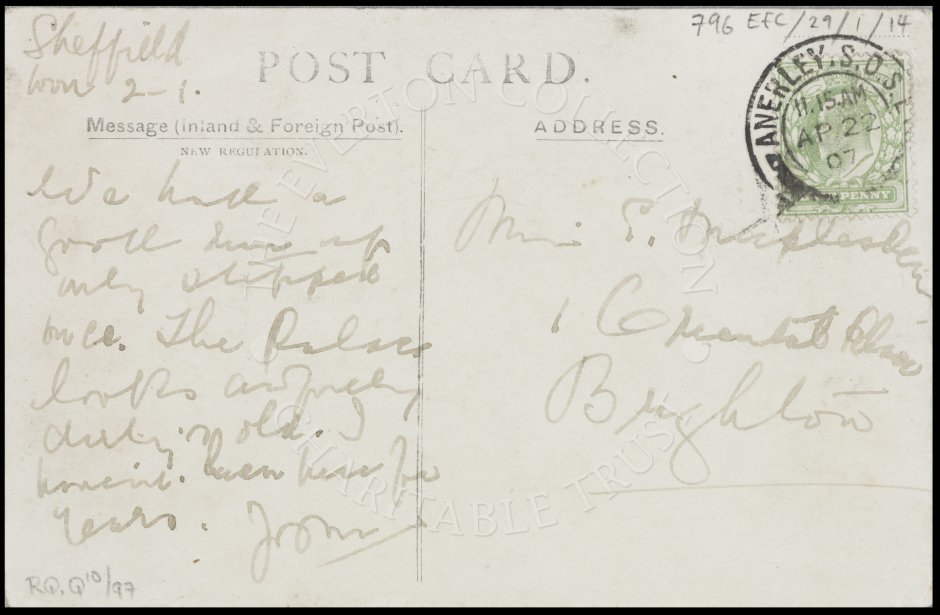 796 EFC/29/1/14
Sheffield
won 2-1.
POST CARD.
Message (Inland & Foreign Post).
NEW REGULATION.
We had a
good run up
only stopped
once. The Palace
looks awfully
dirty & old. I
haven't been here for
years. John
ADDRESS.
Miss E.
1 Oriental Place
Brighton
ANERLEY. S.O.S.E
11.15 AM
AP 22
07
PENNY
THE EVERTON COLLECTION
CHARITABLE TRUST
R.Q.Q10/97